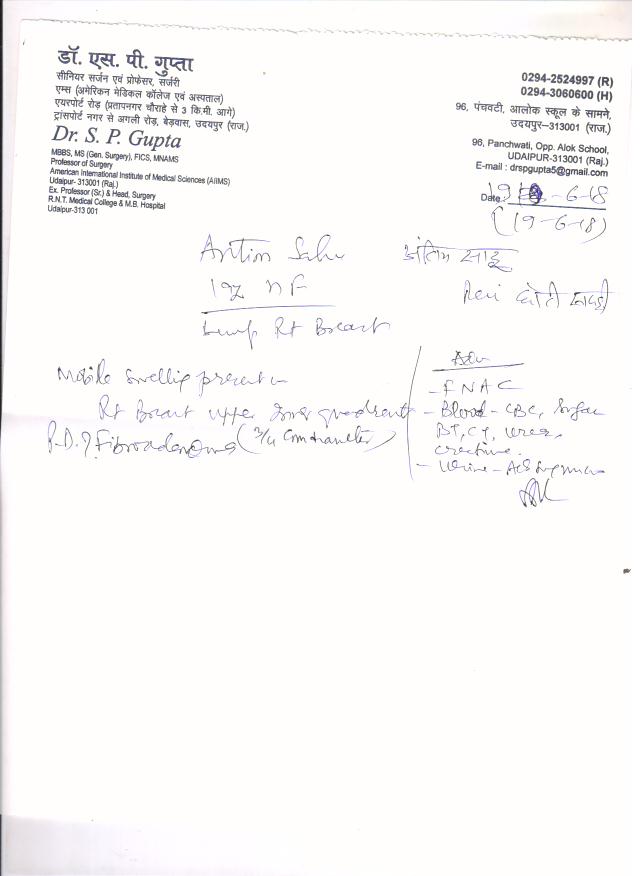 डॉ. एस. पी. गुप्ता
सीनियर सर्जन एवं प्रोफेसर, सर्जरी
एम्स (अमेरिकन मेडिकल कॉलेज एवं अस्पताल)
एयरपोर्ट रोड़ (प्रतापनगर चौराहे से 3 कि.मी. आगे)
ट्रांसपोर्ट नगर से अगली रोड़, बेड़वास, उदयपुर (राज.)
Dr. S. P. Gupta
MBBS, MS (Gen. Surgery), FICS, MNAMS
Professor of Surgery
American International Institute of Medical Sciences (AIIMS)
Udaipur- 313001 (Raj.)
Ex. Professor (Sr.) & Head, Surgery
R.N.T. Medical College & M.B. Hospital
Udaipur-313 001
0294-2524997 (R)
0294-3060600 (H)
96, पंचवटी, आलोक स्कूल के सामने,
उदयपुर–313001 (राज.)
96, Panchwati, Opp. Alok School,
UDAIPUR-313001 (Raj.)
E-mail : drspgupta5@gmail.com
Date: 19-6-18
(19-6-18)
Antim Sahu अंतिम साहू
19 F
Lump Rt Breast
Mobile swelling present in
Rt Breast upper inner quadrant
P.D. ? Fibroadenoma (3/4 Cm diameter)
Adv
- FNAC
- Blood - CBC, Sugar
BT, CT, Urea,
Creatinine
- Urine -